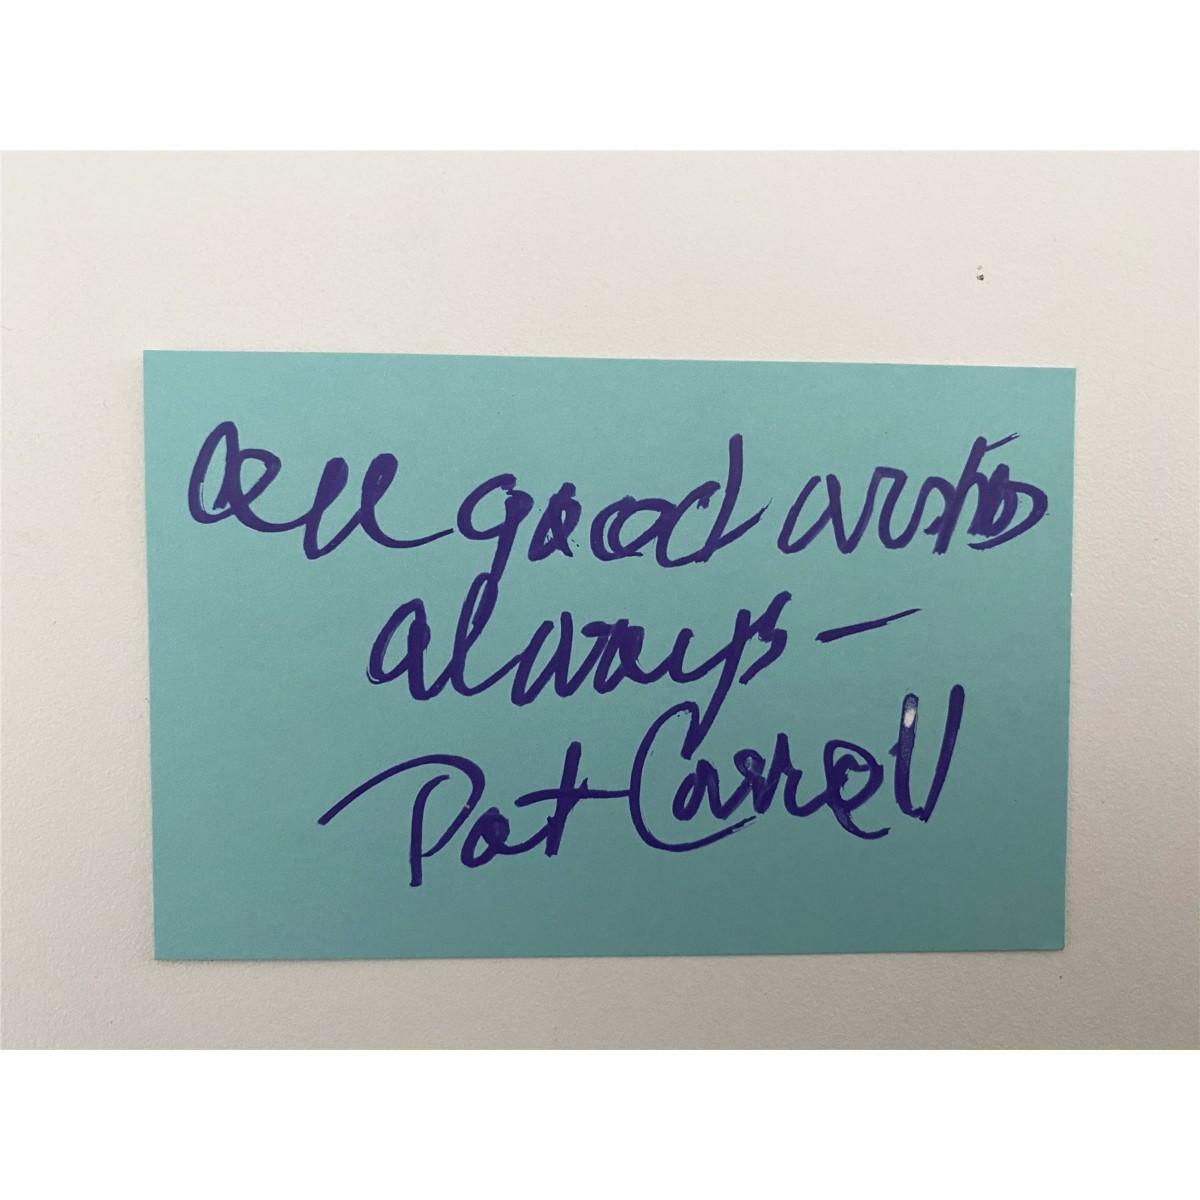 All good wishes
always –
Pat Carroll